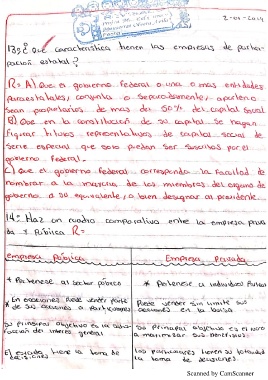 2-05-2014
13¿ Que característica tienen las empresas de partici-
pación estatal?
R= A) Que el gobierno Federal o una o mas entidades
paraestatales, conjunta o Separadamente, aporten o
sean propietarios de mas del 50% del capital Social
B) Que en la constitución de su capital se hagan
Figurar titulos representativos de capital social de
Serie especial que solo puedan ser suscritos por el
gobierno Federal.
C) Que el gobierno Federal corresponda la Facultad de
nombrar a la mayoria de los miembros del organo de
gobierno o su equivalente, o bien designar al presidente
14= Haz un cuadro comparativo entre la empresa priva
da y Pública R=
empresa Pública Empresa privada
* Pertenece al sector público * Pertenece a individuos
* En ocasiones Puede vender parte
de sus acciones a Particulares
Puede vender sin limite sus
acciones en la bolsa
Su principal objetivo es la
del interes general
Su principal objetivo es el
a maximizar sus beneficios
El estado tiene la toma de
decisiones
los particulares tienen su
la toma de decisiones.
Scanned by CamScanner